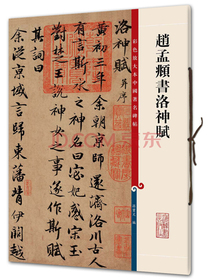 趙孟頫書洛神賦
彩色放大本中國著名碑帖
洛神賦 并序
黃初三年余朝京師還濟洛川古人
有言斯水之神名曰宓妃感宋玉
對楚王說神女事遂作斯賦
余從京域言歸東藩背伊闕越